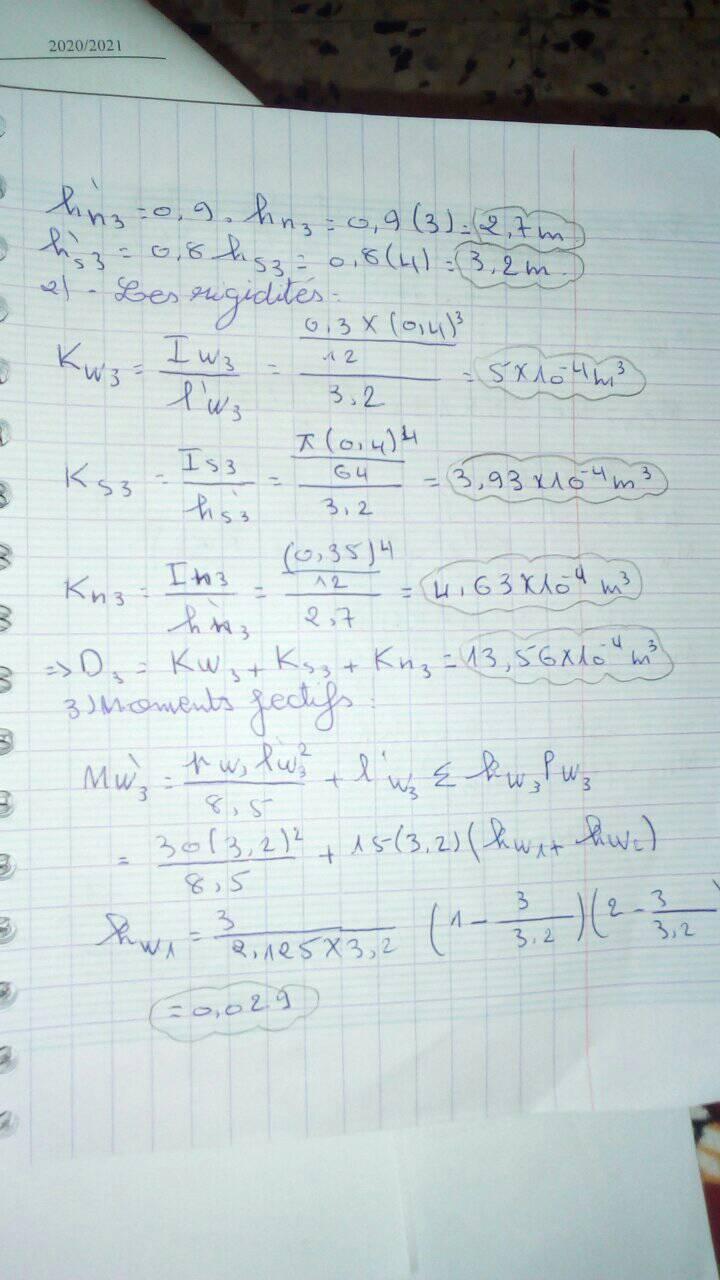 2020/2021
h'n3 = 0,9 . hn3 = 0,9(3) = 2,7m
h's3 = 0,8 hs3 = 0,8(4) = 3,2m.
2) - Les rigidités :
Kw3 = Iw3 / l'w3 = (0,3 × (0,4)³ / 12) / 3,2 = 5×10⁻⁴m³
Ks3 = Is3 / h's3 = (π(0,4)⁴ / 64) / 3,2 = 3,93×10⁻⁴m³
Kn3 = In3 / h'n3 = ((0,35)⁴ / 12) / 2,7 = 4,63×10⁻⁴ m³
=> D3 = Kw3 + Ks3 + Kn3 = 13,56×10⁻⁴m³
3) Moments :
M'w3 = l'w3² / 8,5 + l'w3 Σ kw3 Pw3
= 30(3,2)² / 8,5 + 15(3,2)(kw1 + kw2)
kw1 = 3 / (2,125×3,2) (1 - 3/3,2)(2 - 3/3,2)
= 0,029